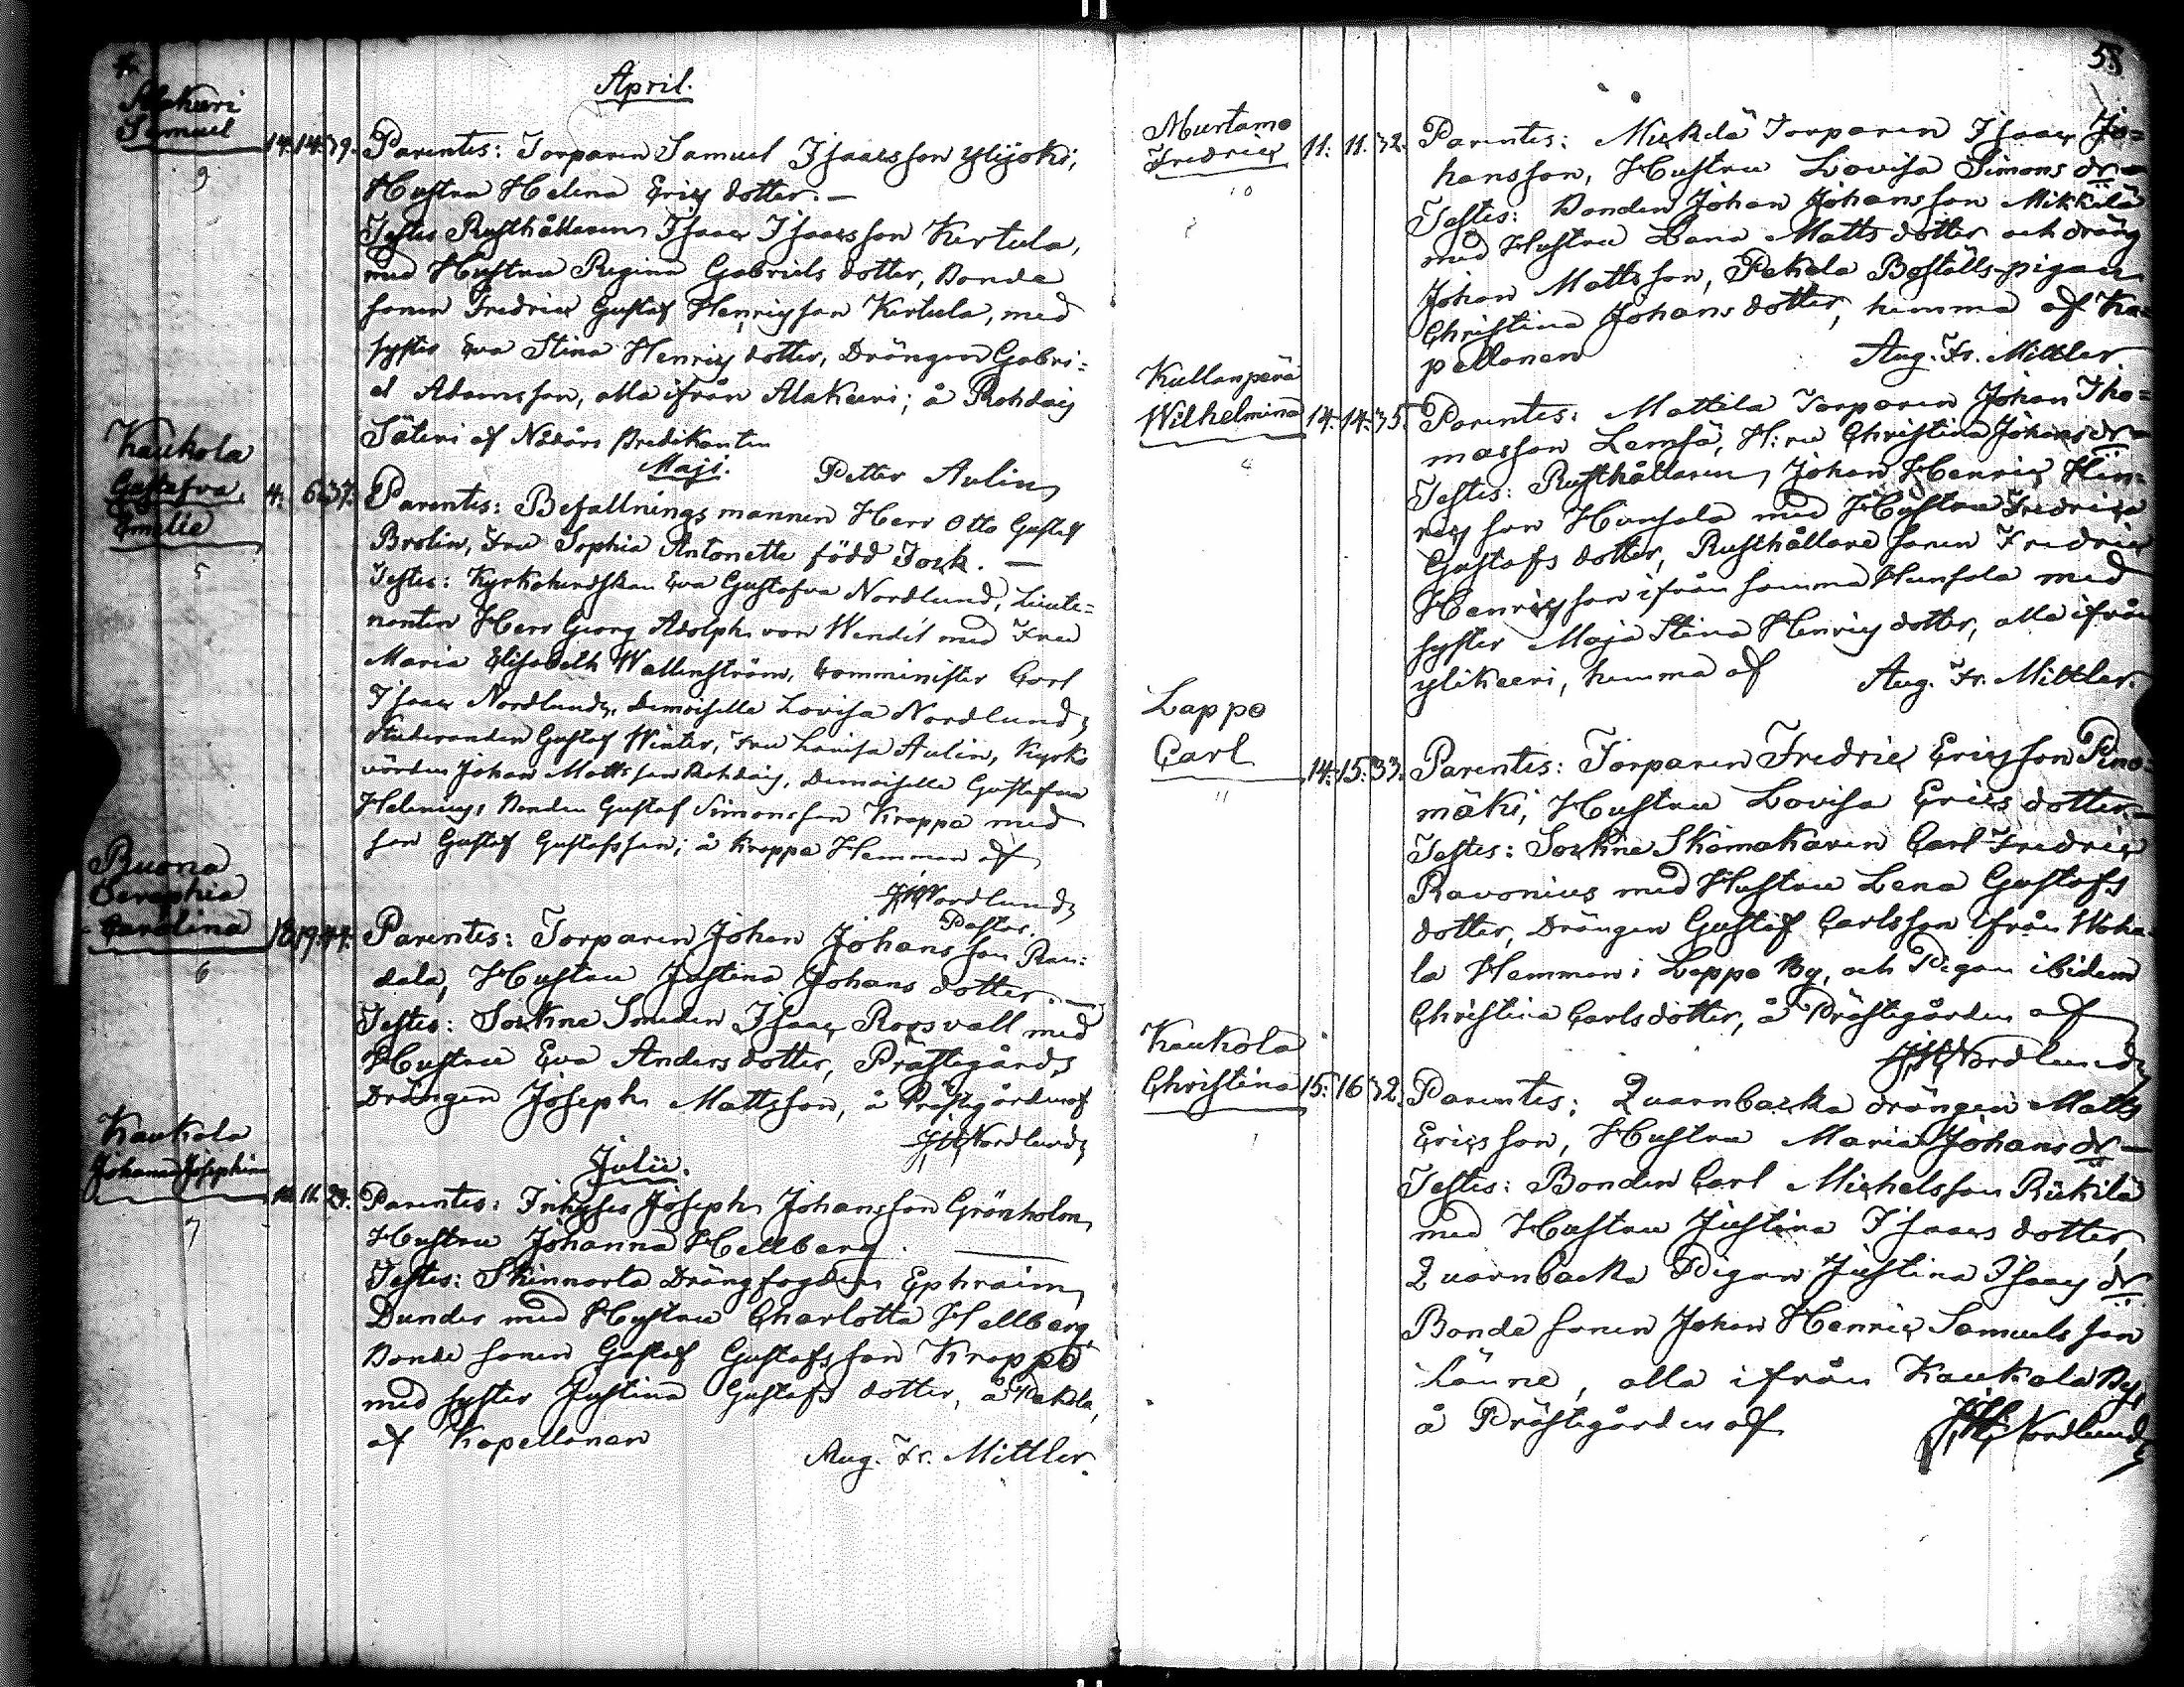 April.
Alakeeri
Samuel
9
14. 14. 39. Parentes: Torparen Samuel Isaacsson Ylijoki,
Hustru Helena Ericsdotter. —
Testes Rusthållaren Isaac Isaacsson Kertula,
med Hustru Regina Gabriels dotter, Bonde
sonen Fredric Gustaf Henricsson Kertula, med
syster Eva Stina Henrics dotter, Drängen Gabri=
el Adamsson, alla ifrån Alakeeri; å Rohdais
Säteri af Nådårs Predikanten
Petter Aulin
Maji.
Kaukola
Gustafva
Emelie
5
4. 6. 37. Parentes: Befallningsmannen Herr Otto Gustaf
Brolin, Fru Sophia Antonette född Tork. —
Testes: Kyrkoherdskan Eva Gustafva Nordlund, Lieute=
nanten Herr Georg Adolph von Wendel med Fru
Maria Elisabeth Wallenström, Comminister Carl
Isaac Nordlund, Demoiselle Lovisa Nordlund,
Studeranden Gustaf Winter, Fru Lovisa Aulin, Kyrko
värden Johan Mattsson Rohdais, Demoiselle Gustafva
Helenius, Bonden Gustaf Simonsson Kroppa med
son Gustaf Gustafsson; å Kroppa Hemman af
Nordlund
Pastor.
Buona
Seraphia
Carolina
6
18. 19. 44. Parentes: Torparen Johan Johansson Rau=
dala, Hustru Justina Johans dotter. —
Testes: Sockne Smeden Isaac Roosvall med
Hustru Eva Anders dotter, Prästegårds
Drängen Joseph Mattsson, å Prästegården af
Nordlund
Julii.
Kaukola
Johanna Josephina
7
10. 11. 24. Parentes: Inhyses Joseph Johansson Grönholm,
Hustru Johanna Hellberg. —
Testes: Skinnarla Drängfogden Ephraim
Dunder med Hustru Charlotta Hellberg,
Bonde sonen Gustaf Gustafsson Kroppa
med syster Justina Gustafs dotter, å Pekola,
af Kapellanen
Aug. Fr. Mittler.
58
Murtamo
Fredric
10
11. 11. 32. Parentes: Mickilä Torparen Isaac Jo=
hansson, Hustru Lovisa Simons dr —
Testes: Bonden Johan Johansson Mikkilä
med Hustru Lena Matts dotter och dräng
Johan Mattsson, Pekola Boställs-pigan
Christina Johans dotter, hemma af Ka=
pellanen
Aug. Fr. Mittler
Kullanperä
Wilhelmina
14. 14. 35. Parentes: Mattila Torparen Johan Tho=
masson Lemsä, H:ru Christina Johans dr —
Testes: Rusthållaren Johan Henric Hen=
ricsson Hunsala med Hustru Fredrica
Gustafs dotter, Rusthållare sonen Fredric
Henricsson ifrån samma Hunsala med
syster Maja Stina Henrics dotter, alla ifrån
Ylikeeri, hemma af
Aug. Fr. Mittler.
Lappo
Carl
11
14. 15. 33. Parentes: Torparen Fredric Ericsson Pino=
mäki, Hustru Lovisa Erics dotter. —
Testes: Sockne Skomakaren Carl Fredric
Ravonius med Hustru Lena Gustafs
dotter, Drängen Gustaf Carlsson ifrån Woha=
la Hemman i Lappo By, och Pigan ibidem
Christina Carls dotter, å Prästegården af
Nordlund
Kaukola
Christina
15. 16. 32. Parentes: Quarnbacka drängen Matts
Ericsson, Hustru Maria Johans dr —
Testes: Bonden Carl Michelsson Rickilä
med Hustru Justina Isaacs dotter,
Quarnbacka Pigan Justina Isaacs dr
Bonde sonen Johan Henric Samuelsson
Länne, alla ifrån Kaukola By,
å Prästegården af
Nordlund